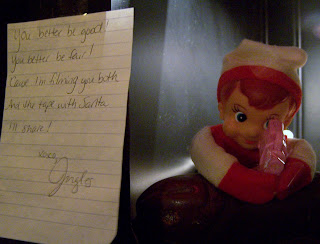 You better be good!
You better be fair!
Cause I'm filming you both
And the tape with Santa
I'll share!
xoxo,
Jingles